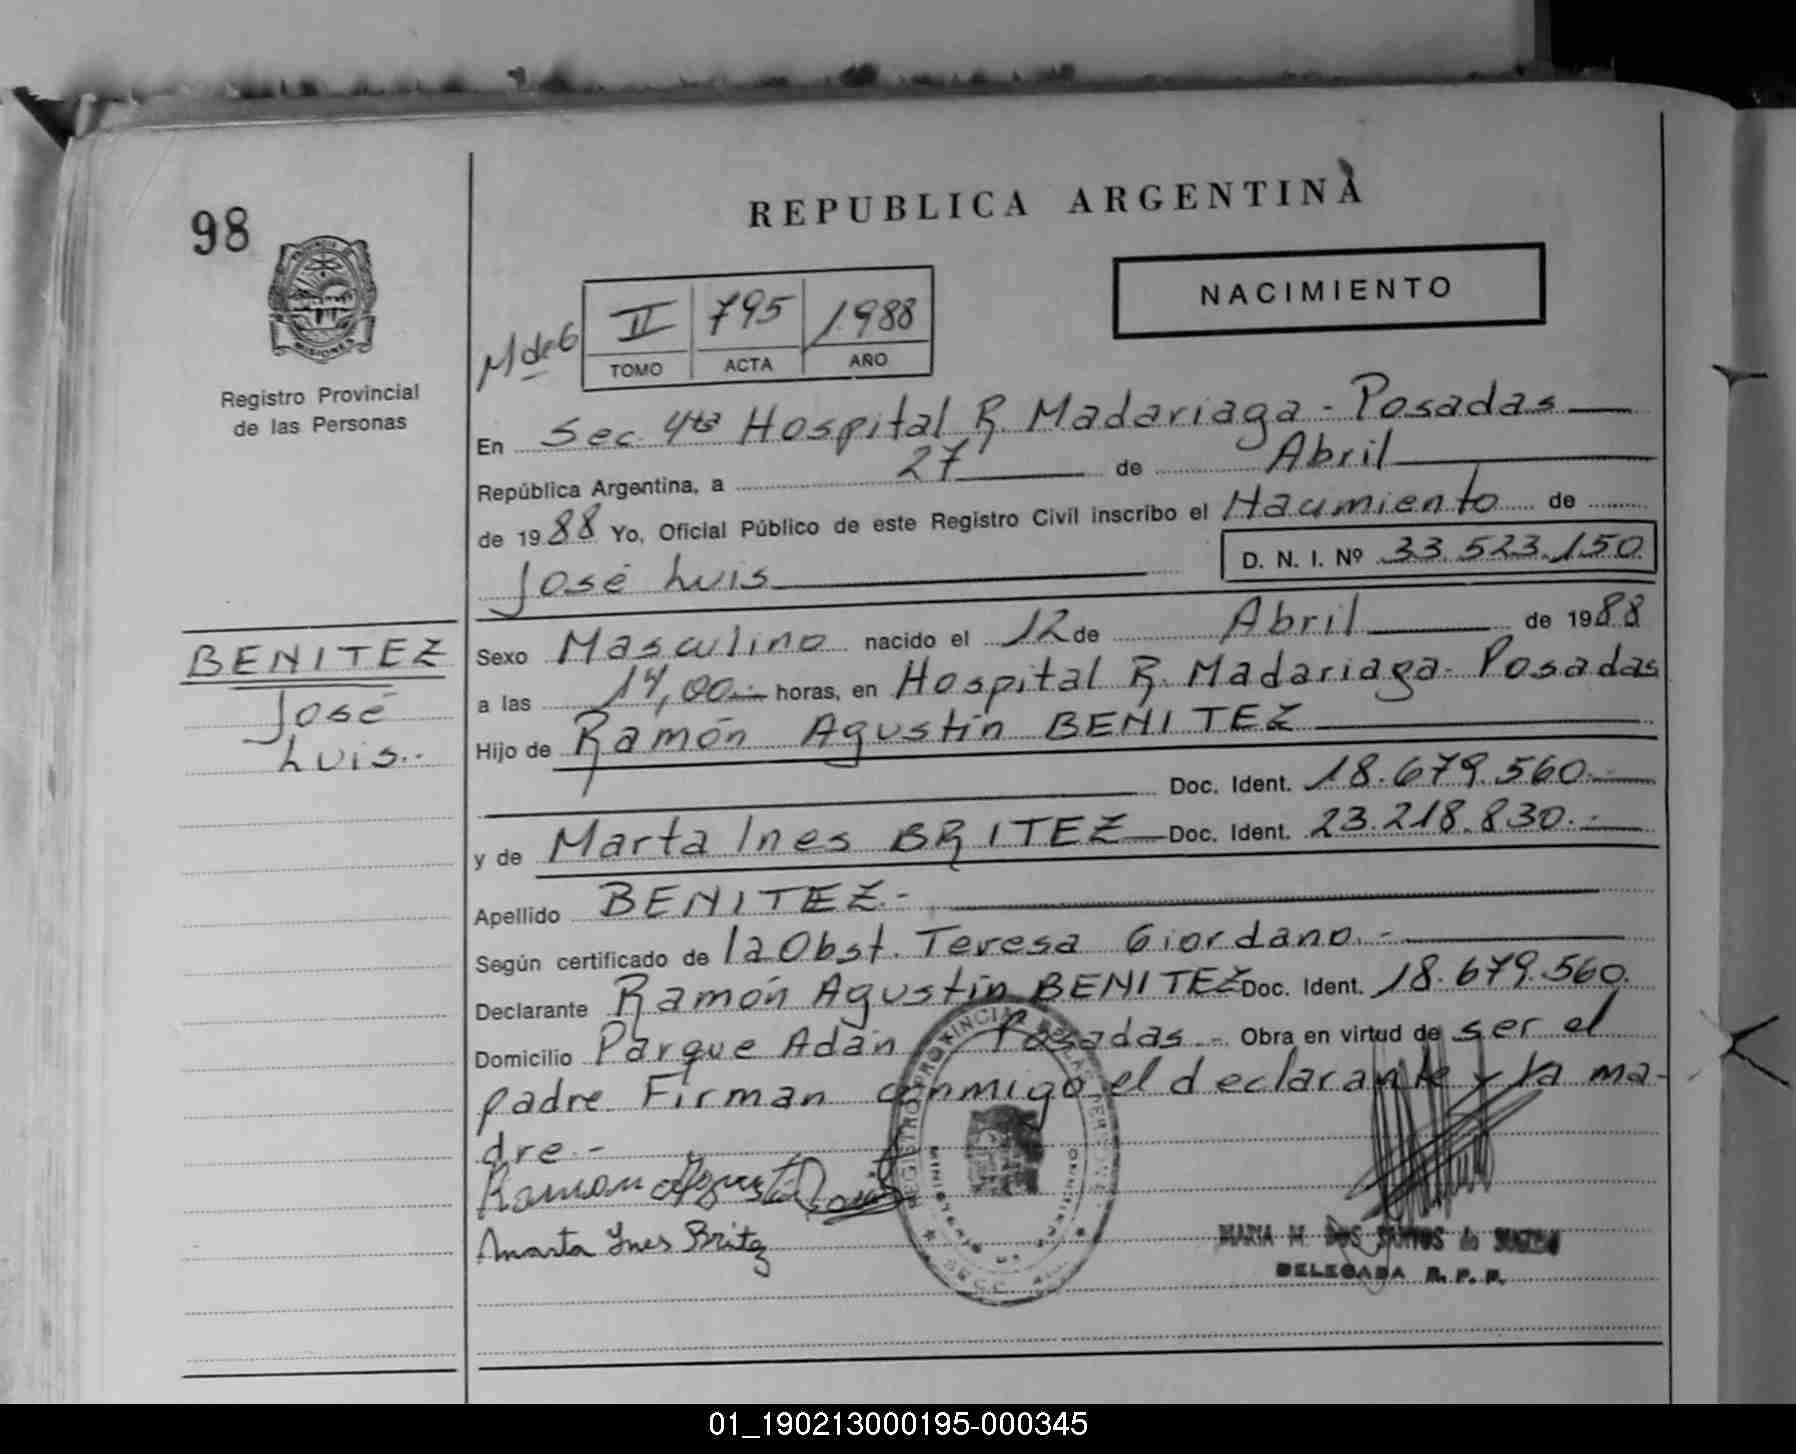 98
REPUBLICA ARGENTINA
PROVINCIA
MISIONES
Registro Provincial
de las Personas
NACIMIENTO
M de G
II 795 1988
TOMO ACTA AÑO
En Sec. 4ta Hospital R. Madariaga - Posadas
República Argentina, a 27 de Abril
de 1988 Yo, Oficial Público de este Registro Civil inscribo el Nacimiento de
José Luis D. N. I. Nº 33.523.150
BENITEZ
José
Luis.-
Sexo Masculino nacido el 12 de Abril de 1988
a las 14,00.- horas, en Hospital R. Madariaga - Posadas
Hijo de Ramón Agustín BENITEZ
Doc. Ident. 18.679.560.-
y de Marta Ines BRITEZ Doc. Ident. 23.218.830.-
Apellido BENITEZ.-
Según certificado de la Obst. Teresa Giordano.-
Declarante Ramón Agustín BENITEZ Doc. Ident. 18.679.560.
Domicilio Parque Adán Posadas.- Obra en virtud de ser el
padre. Firman conmigo el declarante y la ma-
dre.-
Ramon Agustin
Marta Ines Britez
REGISTRO PROVINCIAL DE LAS PERSONAS
MINISTERIO DE
MARIA M. DOS SANTOS de
DELEGADA R. P. P.
01_190213000195-000345